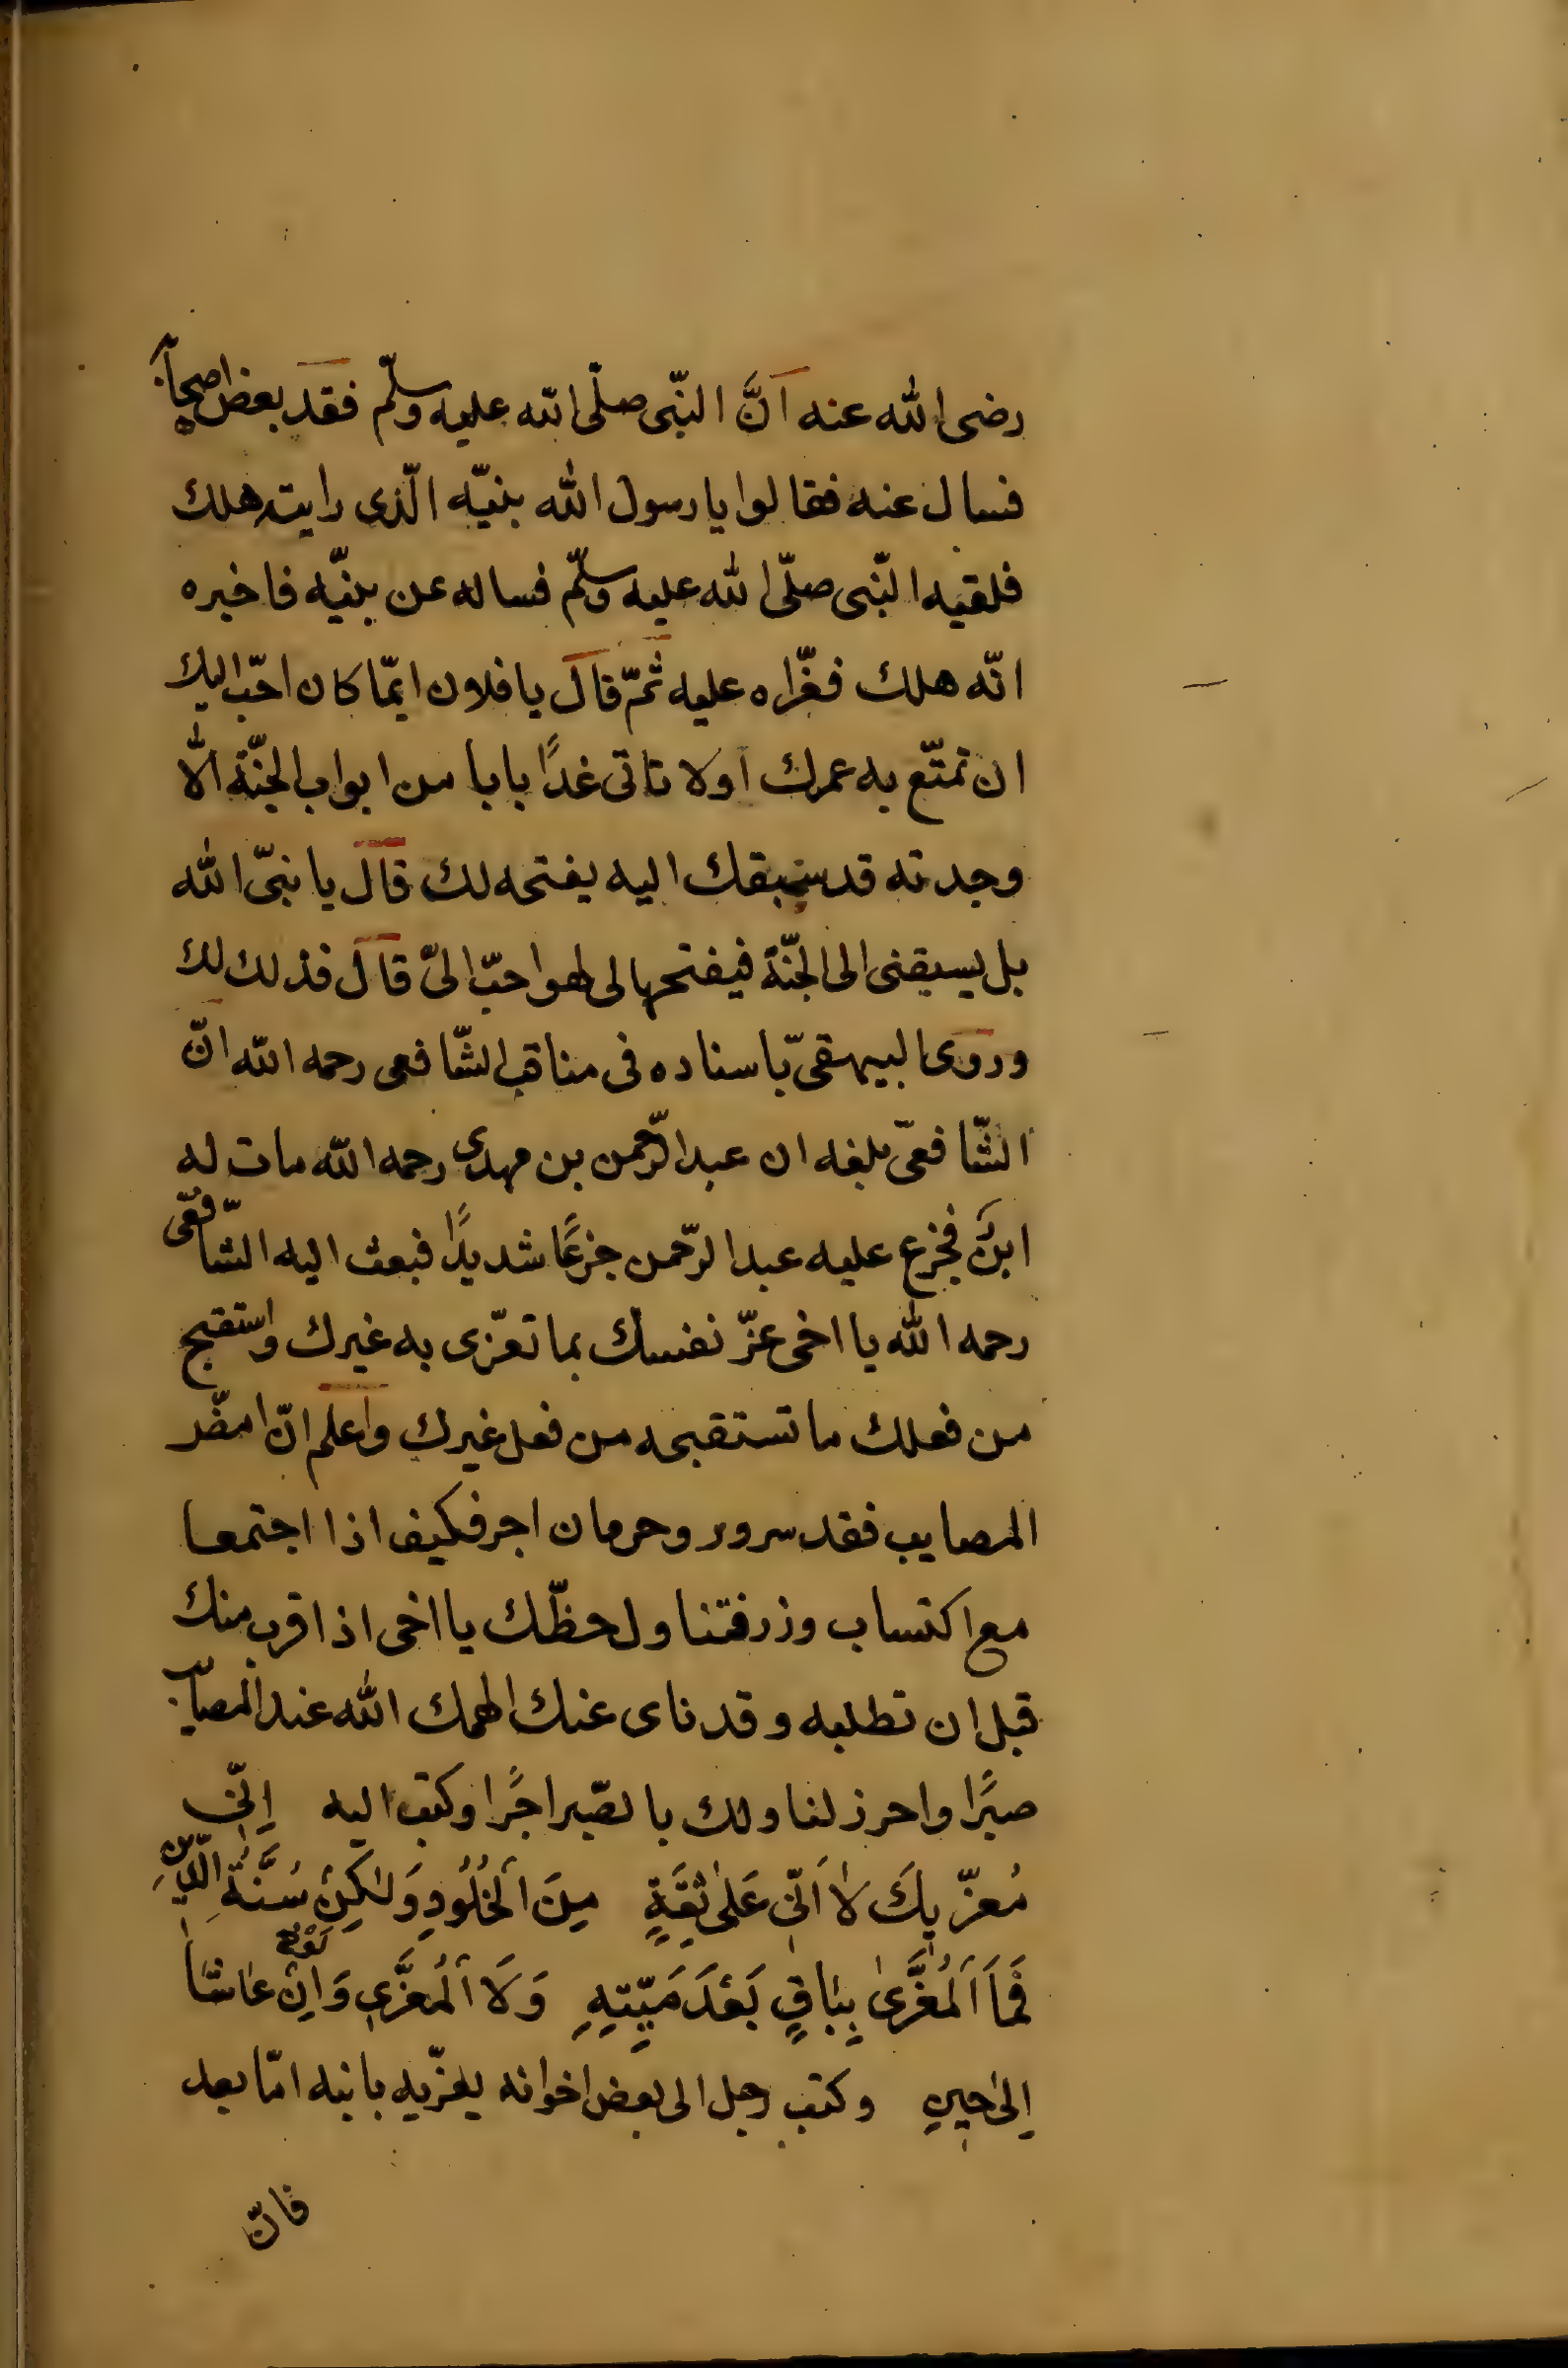 رضى الله عنه اَنَّ النّبى صلّى الله عليه وسلّم فقد بعض اصحابه
فسال عنه فقالوا يا رسول الله بنيّه الّذى رايته هلك
فلقيه النّبى صلّى الله عليه وسلّم فساله عن بنيّه فاخبره
انّه هلك فعزّاه عليه ثمّ قال يا فلان ايمّا كان احبّ اليك
ان تمتّع به عمرك اولا تاتى غدًا بابا من ابواب الجنّة الّا
وجدته قد سبقك اليه يفتحه لك قال يا نبىّ الله
بل يسبقنى الى الجنّة فيفتحها لى لهو احبّ الىّ قال فذلك لك
وروى البيهقىّ باسناده فى مناقب الشّافعى رحمه الله انّ
الشّافعىّ بلغه ان عبد الرّحمن بن مهدى رحمه الله مات له
ابنٌ فجزع عليه عبد الرّحمن جزعًا شديدًا فبعث اليه الشّافعّى
رحمه الله يا اخى عزّ نفسك بما تعزّى به غيرك واستقبح
من فعلك ما تستقبحه من فعل غيرك واعلم انّ امضّ
المصايب فقد سرور وحرمان اجر فكيف اذا اجتمعا
مع اكتساب وزر فتناول حظّك يا اخى اذا قرب منك
قبل ان تطلبه وقد ناى عنك الهمك الله عند المصايب
صبرًا واحرز لنا ولك بالصّبر اجرًا وكتب اليه اِنّى
مُعزّيكَ لا اَنّى عَلى ثِقَةٍ مِنَ الْخُلُودِ وَلكِنْ سُنَّةُ الدّينِ
فَمَا الْمُعَزَّى بِبَاقٍ بَعْدَ مَيِّتِهِ وَلَا الْمُعَزِّى وَاِنْ عَاشَا
اِلى حِينِ وكتب رجل الى بعض اخوانه يعزّيه بابنه امّا بعد
فانّ